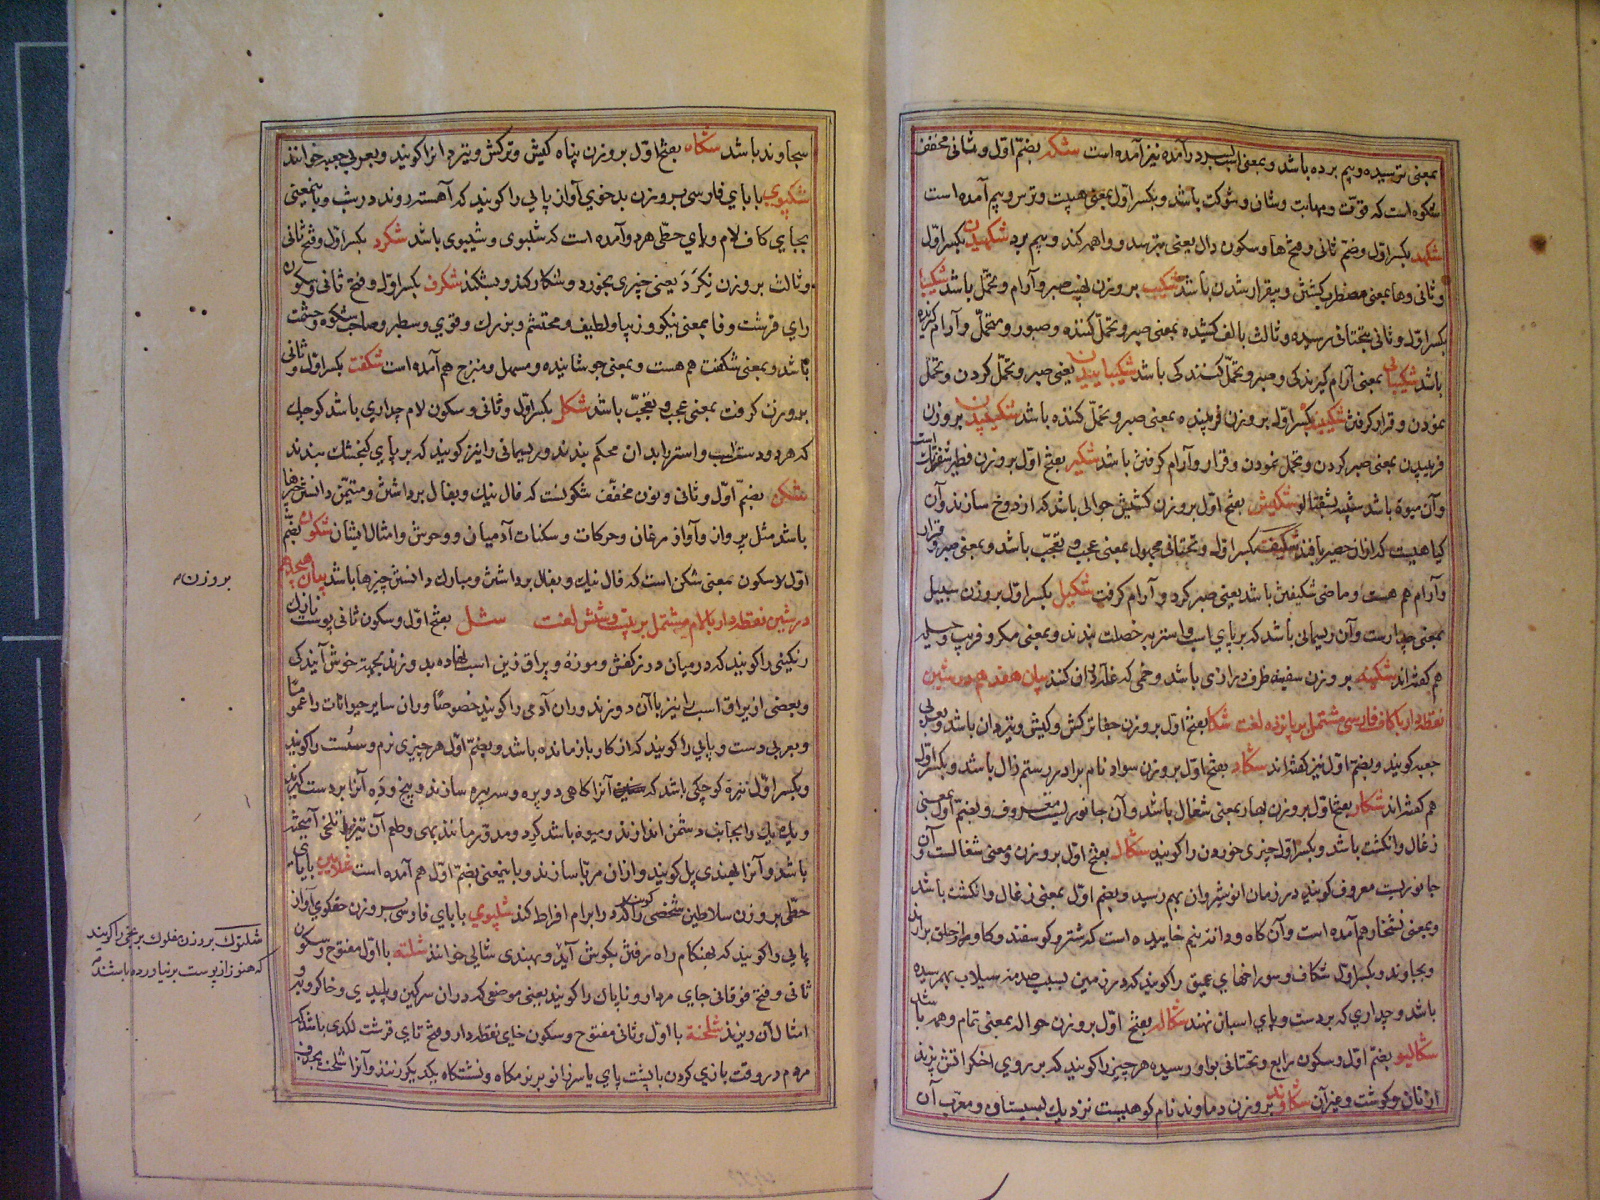 بمعنی ترسیده و بیم برده باشد و بمعنی اسب بسر درآمده نیز آمده است شکه بضم اول و ثانی مخفف
شکوه است که قوت و مهابت و شان و شوکت باشد و بکسر اول بمعنی هیبت و ترس و بیم آمده است
شکهد بکسر اول و ضم ثانی و فتح ها و سکون دال یعنی بترسد و واهمه کند و بیم برد شکهیدن بکسر اول
و ثانی و ها بمعنی مضطرب گشتن و بیقرار شدن باشد شکیب بر وزن نهیب صبر و آرام و تحمل باشد شکیبا
بکسر اول و ثانی بتحتانی رسیده و ثالث بالف کشیده بمعنی صبر و تحمل کننده و صبور و متحمل و آرام گیرنده
باشد شکیبائی بمعنی آرام گیرندگی و صبر و تحمل کنندگی باشد شکیبائیدن یعنی صبر و تحمل کردن و تحمل
نمودن و قرار گرفتن شکیبنده بکسر اول بر وزن فریبنده بمعنی صبر و تحمل کننده باشد شکیبیدن بر وزن
فریبیدن بمعنی صبر کردن و تحمل نمودن و قرار و آرام گرفتن باشد شکیر بفتح اول بر وزن فطیر شفترنک است
و آن میوهٔ باشد شبیه بشفتالو شکیش بفتح اول بر وزن کشیش جوالی باشد که از دوخ سازند و آن
گیاهیست که از آن حصیر بافند شکیف بکسر اول و تحتانی مجهول بمعنی عجب و تعجب باشد و بمعنی صبر و قرار
و آرام هم هست و ماضی شکیفتن باشد یعنی صبر کرد و آرام گرفت شکیل بکسر اول بر وزن سبیل
بمعنی چدارست و آن ریسمانی باشد که بر پای اسب و استر بدخصلت بندند و بمعنی مکر و فریب و حیله
هم گفته‌اند شکینه بر وزن سفینه ظرف درازی باشد و خمی که غله در آن کنند بیان هفدهم در شین
نقطه‌دار با کاف فارسی مشتمل بر پانزده لغت شگا بفتح اول بر وزن جفا ترکش و کیش و تیردان باشد و بعربی
جعبه گویند و بضم اول نیز گفته‌اند شگاد بفتح اول بر وزن سواد نام برادر رستم زال باشد و بکسر اول
هم گفته‌اند شگار بفتح اول بر وزن بهار بمعنی شغال باشد و آن جانوریست معروف و بضم اول بمعنی
زغال و انگشت باشد و بکسر اول چیزی خوردن را گویند شگال بفتح اول بر وزن و معنی شغالست و آن
جانوریست معروف گویند در زمان انوشیروان بهم رسید و بضم اول بمعنی زغال و انگشت باشد
و بمعنی نشخار هم آمده است و آن کاه و دانه نیم خاییده است که شتر و گوسفند و گاو از حلق برآرند
و بجاوند و بکسر اول شکاف و سوراخهای عمیق را گویند که در زمین بسبب صدمه سیلاب بهم رسیده
باشد و چداری که بر دست و پای اسبان نهند شگاله بفتح اول بر وزن حواله بمعنی تمام و همه باشد
شگالیو بضم اول و سکون رابع و تحتانی بواو رسیده هر چیز را گویند که بر روی اخگر آتش پزند
از نان و گوشت و غیر آن شگاوند بر وزن دماوند نام کوهیست نزدیک بسیستان و معرب آن
سجاوند باشد شگاه بفتح اول بر وزن پناه کیش و ترکش و تیردان را گویند و بعربی جعبه خوانند
شگپوی با بای فارسی بر وزن بدخوی آواز پایی را گویند که آهسته روند در شب و باینمعنی
بجای کاف لام و یای حطی هر دو آمده است که شلبوی و شیبوی باشد شگرد بکسر اول و فتح ثانی
و ثالث بر وزن نگرد یعنی چیزی بخورد و شکار کند و بشکند شگرف بکسر اول و فتح ثانی و سکون
رای قرشت و فا بمعنی نیکو و زیبا و لطیف و محتشم و بزرگ و قوی و سطبر و صاحب شکوه و حشمت
باشد و بمعنی شگفت هم هست و بمعنی جوشانیده و مسهل و منزج هم آمده است شگفت بکسر اول و ثانی
بر وزن گرفت بمعنی عجب و تعجب باشد شگل بکسر اول و ثانی و سکون لام چداری باشد کوچک
که هر دو دست اسب و استر را بدان محکم بندند و ریسمانی را نیز گویند که بر پای گنجشک بندند
شگن بضم اول و ثانی و نون مخفف شگونست که فال نیک و بفال برداشتن و متیمن دانستن چیزها
باشد مثل پرواز و آواز مرغان و حرکات و سکنات آدمیان و وحوش و امثال ایشان شگون بضم
اول بمعنی شگن است که فال نیک و بفال برداشتن و مبارک دانستن چیزها باشد بیان هجدهم
در شین نقطه‌دار با لام مشتمل بر بیست و شش لغت شل بفتح اول و سکون ثانی پوست نازک
رنگینی را گویند که در میان درز کفش و موزه و یراق زین اسب نهاده بدوزند بجهت خوش آیندگی
و بعضی از یراق اسب را نیز با آن دوزند و ران آدمی را گویند خصوصاً و ران سایر حیوانات را عموماً
و بعربی دست و پایی را گویند که از کار باز مانده باشد و بضم اول هر چیزی نرم و سست را گویند
و بکسر اول نیزهٔ کوچکی باشد که آنرا گاهی دو پره و سه پره سازند و پنج و ده آنرا بر دست گیرند
و یک یک را بجانب دشمن اندازند و میوهٔ باشد گرد و مدور مانند بهی و طعم آن تیز بتلخی آمیخته
باشد و آنرا بهندی بل گویند و از آن مربا سازند و باینمعنی بضم اول هم آمده است شلایین با یای
حطی بر وزن سلاطین شخصی را گویند که در ابرام افراط کند شلپوی با بای فارسی بر وزن حقگوی آواز
پایی را گویند که بهنگام راه رفتن بگوش آید و بهندی شالی خوانند شلته با اول مفتوح و سکون
ثانی و فتح فوقانی جای مردار و ناپاک را گویند یعنی موضعی که در آن سرگین و پلیدی و خاکروبه و
امثال آن ریزند شلخته با اول و ثانی مفتوح و سکون خای نقطه‌دار و فتح تای قرشت لگدی باشد که
مردم در وقت بازی کردن با پشت پای یا سر زانو بر نرمگاه و نشستگاه یکدیگر زنند و آنرا شلخت بحذف
بر وزن
شلتوک بر وزن مفلوک برنجی را گویند
که هنوز از پوست بر نیاورده باشند